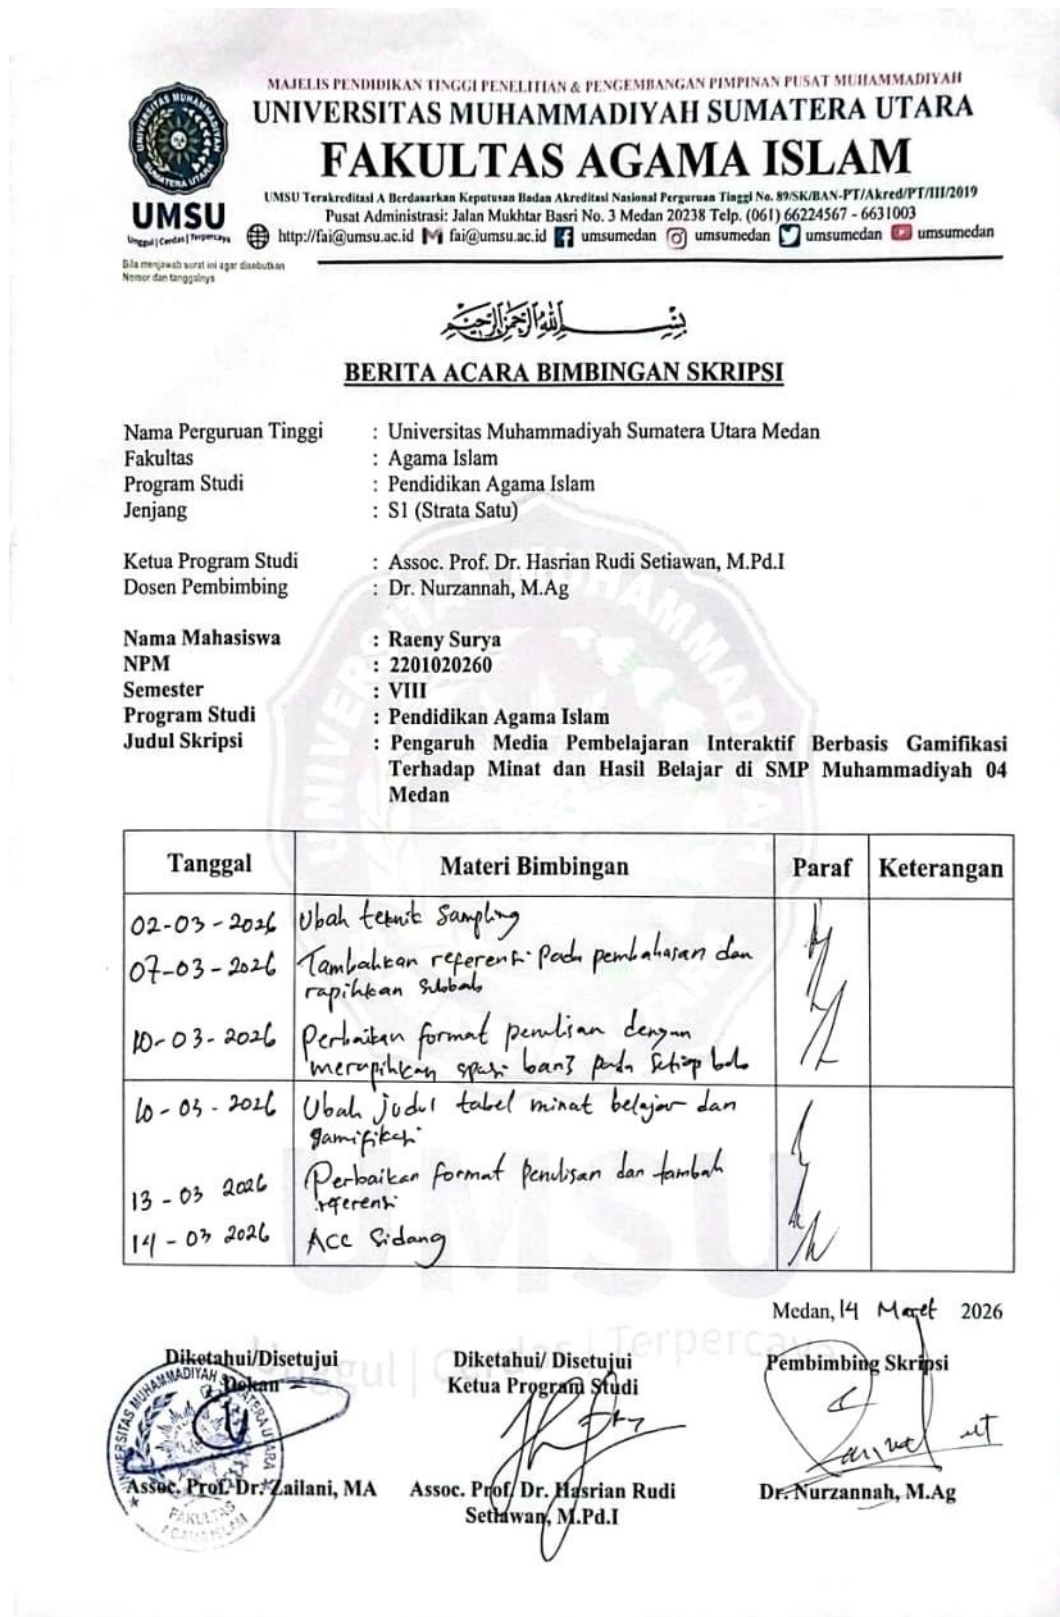 MAJELIS PENDIDIKAN TINGGI PENELITIAN & PENGEMBANGAN PIMPINAN PUSAT MUHAMMADIYAH
UNIVERSITAS MUHAMMADIYAH SUMATERA UTARA
FAKULTAS AGAMA ISLAM
UMSU Terakreditasi A Berdasarkan Keputusan Badan Akreditasi Nasional Perguruan Tinggi No. 89/SK/BAN-PT/Akred/PT/III/2019
Pusat Administrasi: Jalan Mukhtar Basri No. 3 Medan 20238 Telp. (061) 66224567 - 6631003
http://fai@umsu.ac.id fai@umsu.ac.id umsumedan umsumedan umsumedan umsumedan
UNIVERSITAS MUHAMMADIYAH SUMATERA UTARA
UMSU
Unggul | Cerdas | Terpercaya
Bila menjawab surat ini agar disebutkan
Nomor dan tanggalnya
بسم الله الرحمن الرحيم
BERITA ACARA BIMBINGAN SKRIPSI
Nama Perguruan Tinggi : Universitas Muhammadiyah Sumatera Utara Medan
Fakultas : Agama Islam
Program Studi : Pendidikan Agama Islam
Jenjang : S1 (Strata Satu)
Ketua Program Studi : Assoc. Prof. Dr. Hasrian Rudi Setiawan, M.Pd.I
Dosen Pembimbing : Dr. Nurzannah, M.Ag
Nama Mahasiswa : Raeny Surya
NPM : 2201020260
Semester : VIII
Program Studi : Pendidikan Agama Islam
Judul Skripsi : Pengaruh Media Pembelajaran Interaktif Berbasis Gamifikasi
Terhadap Minat dan Hasil Belajar di SMP Muhammadiyah 04
Medan
Tanggal Materi Bimbingan Paraf Keterangan
02-03-2026 Ubah teknik Sampling
07-03-2026 Tambahkan referensi Pada pembahasan dan
rapihkan Subbab
10-03-2026 Perbaikan format penulisan dengan
merapihkan spasi pada Setiap bab
10-03-2026 Ubah judul tabel minat belajar dan
gamifikasi
13-03 2026 Perbaikan format Penulisan dan tambah
referensi
14-03 2026 ACC Sidang
Medan, 14 Maret 2026
Diketahui/Disetujui Diketahui/ Disetujui Pembimbing Skripsi
Dekan Ketua Program Studi
Assoc. Prof. Dr. Zailani, MA Assoc. Prof. Dr. Hasrian Rudi Dr. Nurzannah, M.Ag
Setiawan, M.Pd.I
UNIVERSITAS MUHAMMADIYAH SUMATERA UTARA
FAKULTAS
AGAMA ISLAM
UMSU
Unggul | Cerdas | Terpercaya